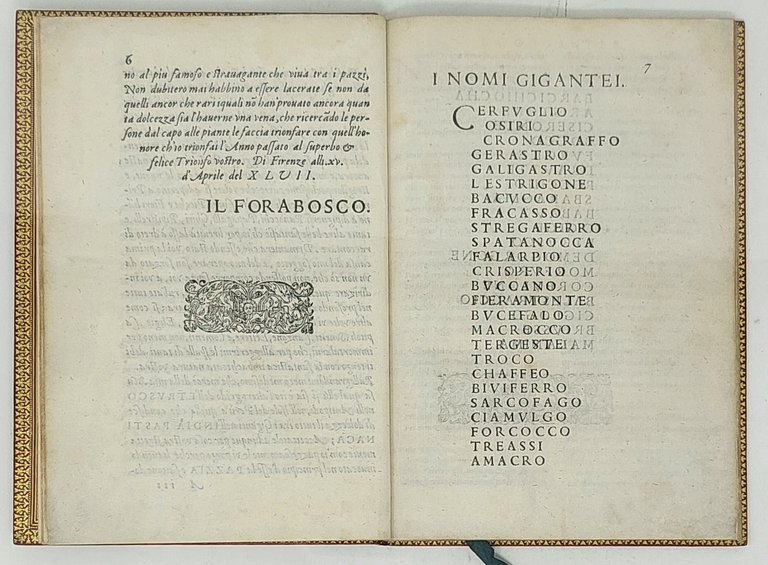 6
no al piu famoso e strauagante che viua tra i pazzi,
Non dubitero mai habbino a essere lacerate se non da
quelli ancor che rari iquali nõ han prouato ancora quan
ta dolcezza sia l'hauerne vna vena, che ricercãdo le per-
sone dal capo alle piante le faccia trionfare con quell'ho-
nore ch'io trionfai l'Anno passato al superbo &
felice Trionfo vostro. Di Firenze alli.xv.
d'Aprile del XLVII.
IL FORABOSCO.
7
I NOMI GIGANTEI.
CERFVGLIO
OSIRI
CRONAGRAFFO
GERASTRO
GALIGASTRO
LESTRIGONE
BACVCCO
FRACASSO
STREGAFERRO
SPATANOCCA
FALARPIO
CRISPERIO
BVCCANO
FIERAMONTE
BVCEFALO
MACROCCO
TERGESTE
TROCO
CHAFFEO
BIVIFERRO
SARCOFAGO
CIAMVLGO
FORCOCCO
TREASSI
AMACRO